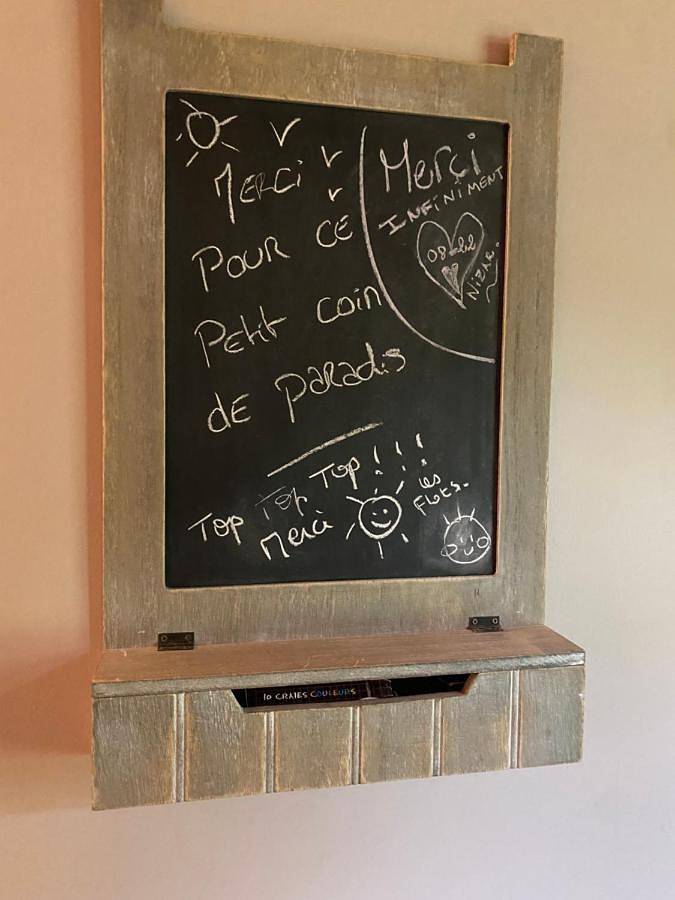 Merci
Pour ce
Petit coin
de paradis
Merçi
INFINIMENT
08-22
Nizar.
Top Top Top ! ! !
Merci
les
Flots.
10 CRAIES COULEURS